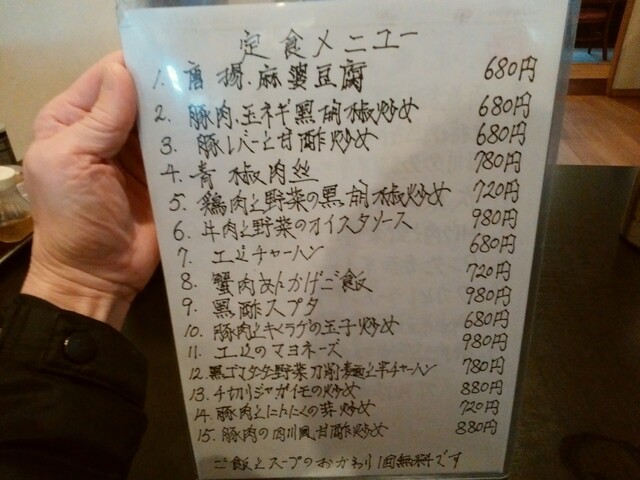 定食メニュー
1. 唐揚.麻婆豆腐 680円
2. 豚肉.玉ネギ黒胡椒炒め 680円
3. 豚レバーと甘酢炒め 680円
4. 青椒肉丝 780円
5. 鶏肉と野菜の黒胡椒炒め 720円
6. 牛肉と野菜のオイスタソース 980円
7. エビチャーハン 680円
8. 蟹肉あんかけご飯 720円
9. 黒酢スブタ 980円
10. 豚肉とキクラゲの玉子炒め 680円
11. エビのマヨネーズ 980円
12. 黒ゴマタンタン野菜刀削麺と半チャーハン 780円
13. 千切りジャガイモの炒め 880円
14. 豚肉とにんにくの芽炒め 720円
15. 豚肉の肉川風甘酢炒め 880円
ご飯とスープのおかわり1回無料です